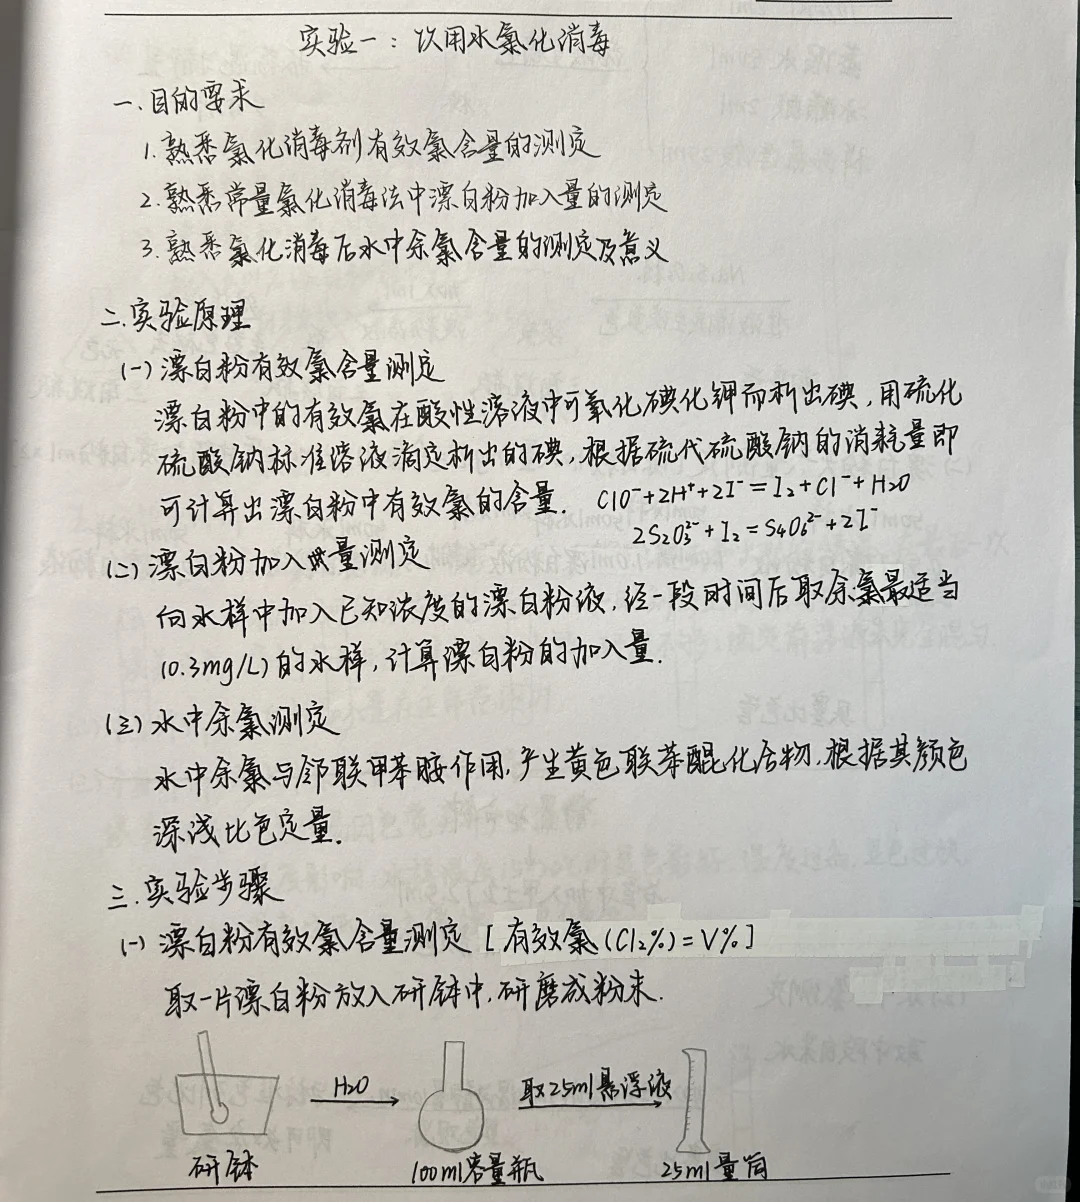 实验一：饮用水氯化消毒
一.目的要求
1.熟悉氯化消毒剂有效氯含量的测定
2.熟悉常量氯化消毒法中漂白粉加入量的测定
3.熟悉氯化消毒后水中余氯含量的测定及意义
二.实验原理
(一)漂白粉有效氯含量测定
漂白粉中的有效氯在酸性溶液中可氧化碘化钾而析出碘,用硫化
硫酸钠标准溶液滴定析出的碘,根据硫代硫酸钠的消耗量即
可计算出漂白粉中有效氯的含量. ClO⁻+2H⁺+2I⁻=I₂+Cl⁻+H₂O
2S₂O₃²⁻+I₂=S₄O₆²⁻+2I⁻
(二)漂白粉加入量测定
向水样中加入已知浓度的漂白粉液,经一段时间后取余氯最适当
(0.3mg/L)的水样,计算漂白粉的加入量.
(三)水中余氯测定
水中余氯与邻联甲苯胺作用,产生黄色联苯醌化合物,根据其颜色
深浅比色定量.
三.实验步骤
(一)漂白粉有效氯含量测定[有效氯(Cl₂%)=V%]
取一片漂白粉放入研钵中,研磨成粉末.
H₂O 取25ml悬浮液
研钵 100ml容量瓶 25ml量筒